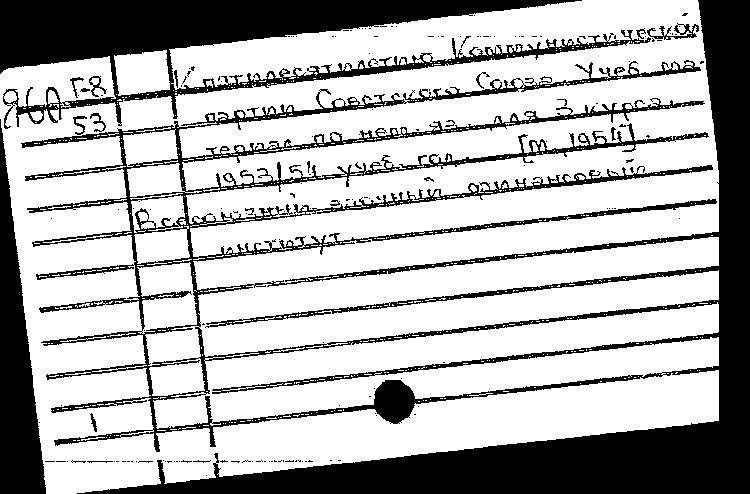 Г-8
53
К пятидесятилетию Коммунистической
партии Советского Союза. Учеб. ма-
териал по нем. яз. для 3 курса.
1953/54 учеб. год. [М., 1954].
Всесоюзный заочный финансовый
институт.
1